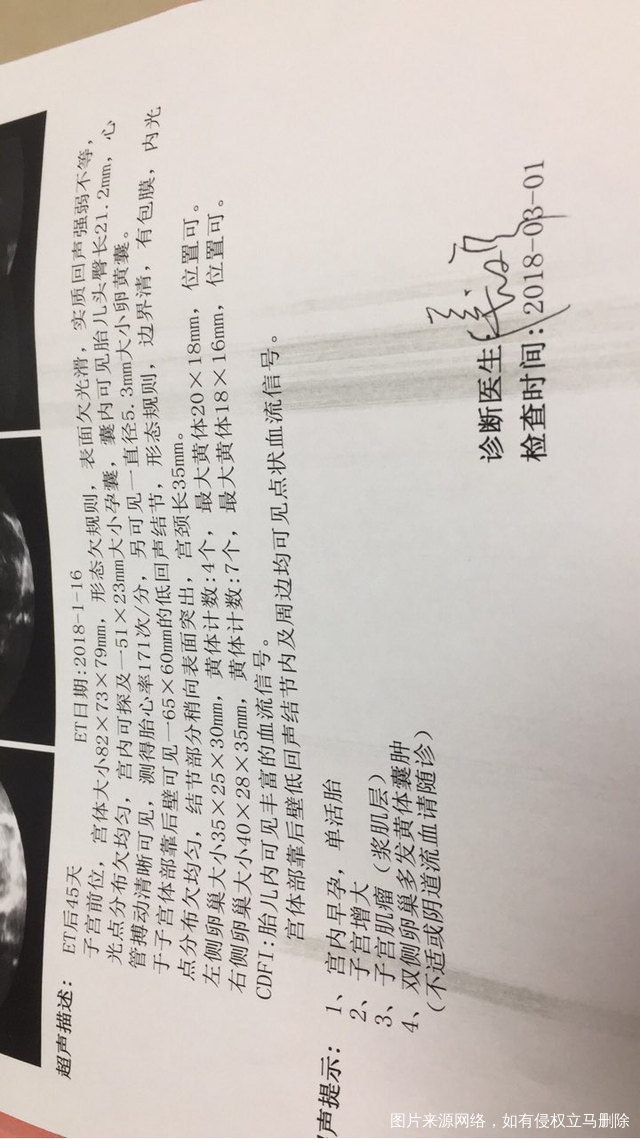 超声描述:
ET后45天 ET日期:2018-1-16
子宫前位，宫体大小82×73×79mm，形态欠规则，表面欠光滑，实质回声强弱不等，
光点分布欠均匀，宫内可探及一51×23mm大小孕囊，囊内可见胎儿头臀长21.2mm，心
管搏动清晰可见，测得胎心率171次/分，另可见一直径5.3mm大小卵黄囊。
于子宫体部靠后壁可见一65×60mm的低回声结节，形态规则，边界清，有包膜，内光
点分布欠均匀，结节部分稍向表面突出，宫颈长35mm。
左侧卵巢大小35×25×30mm，黄体计数:4个，最大黄体20×18mm，位置可。
右侧卵巢大小40×28×35mm，黄体计数:7个，最大黄体18×16mm，位置可。
CDFI:胎儿内可见丰富的血流信号。
宫体部靠后壁低回声结节内及周边均可见点状血流信号。
声提示:
1、宫内早孕，单活胎
2、子宫增大
3、子宫肌瘤（浆肌层）
4、双侧卵巢多发黄体囊肿
（不适或阴道流血请随诊）
诊断医生:
检查时间:2018-03-01
图片来源网络，如有侵权立马删除